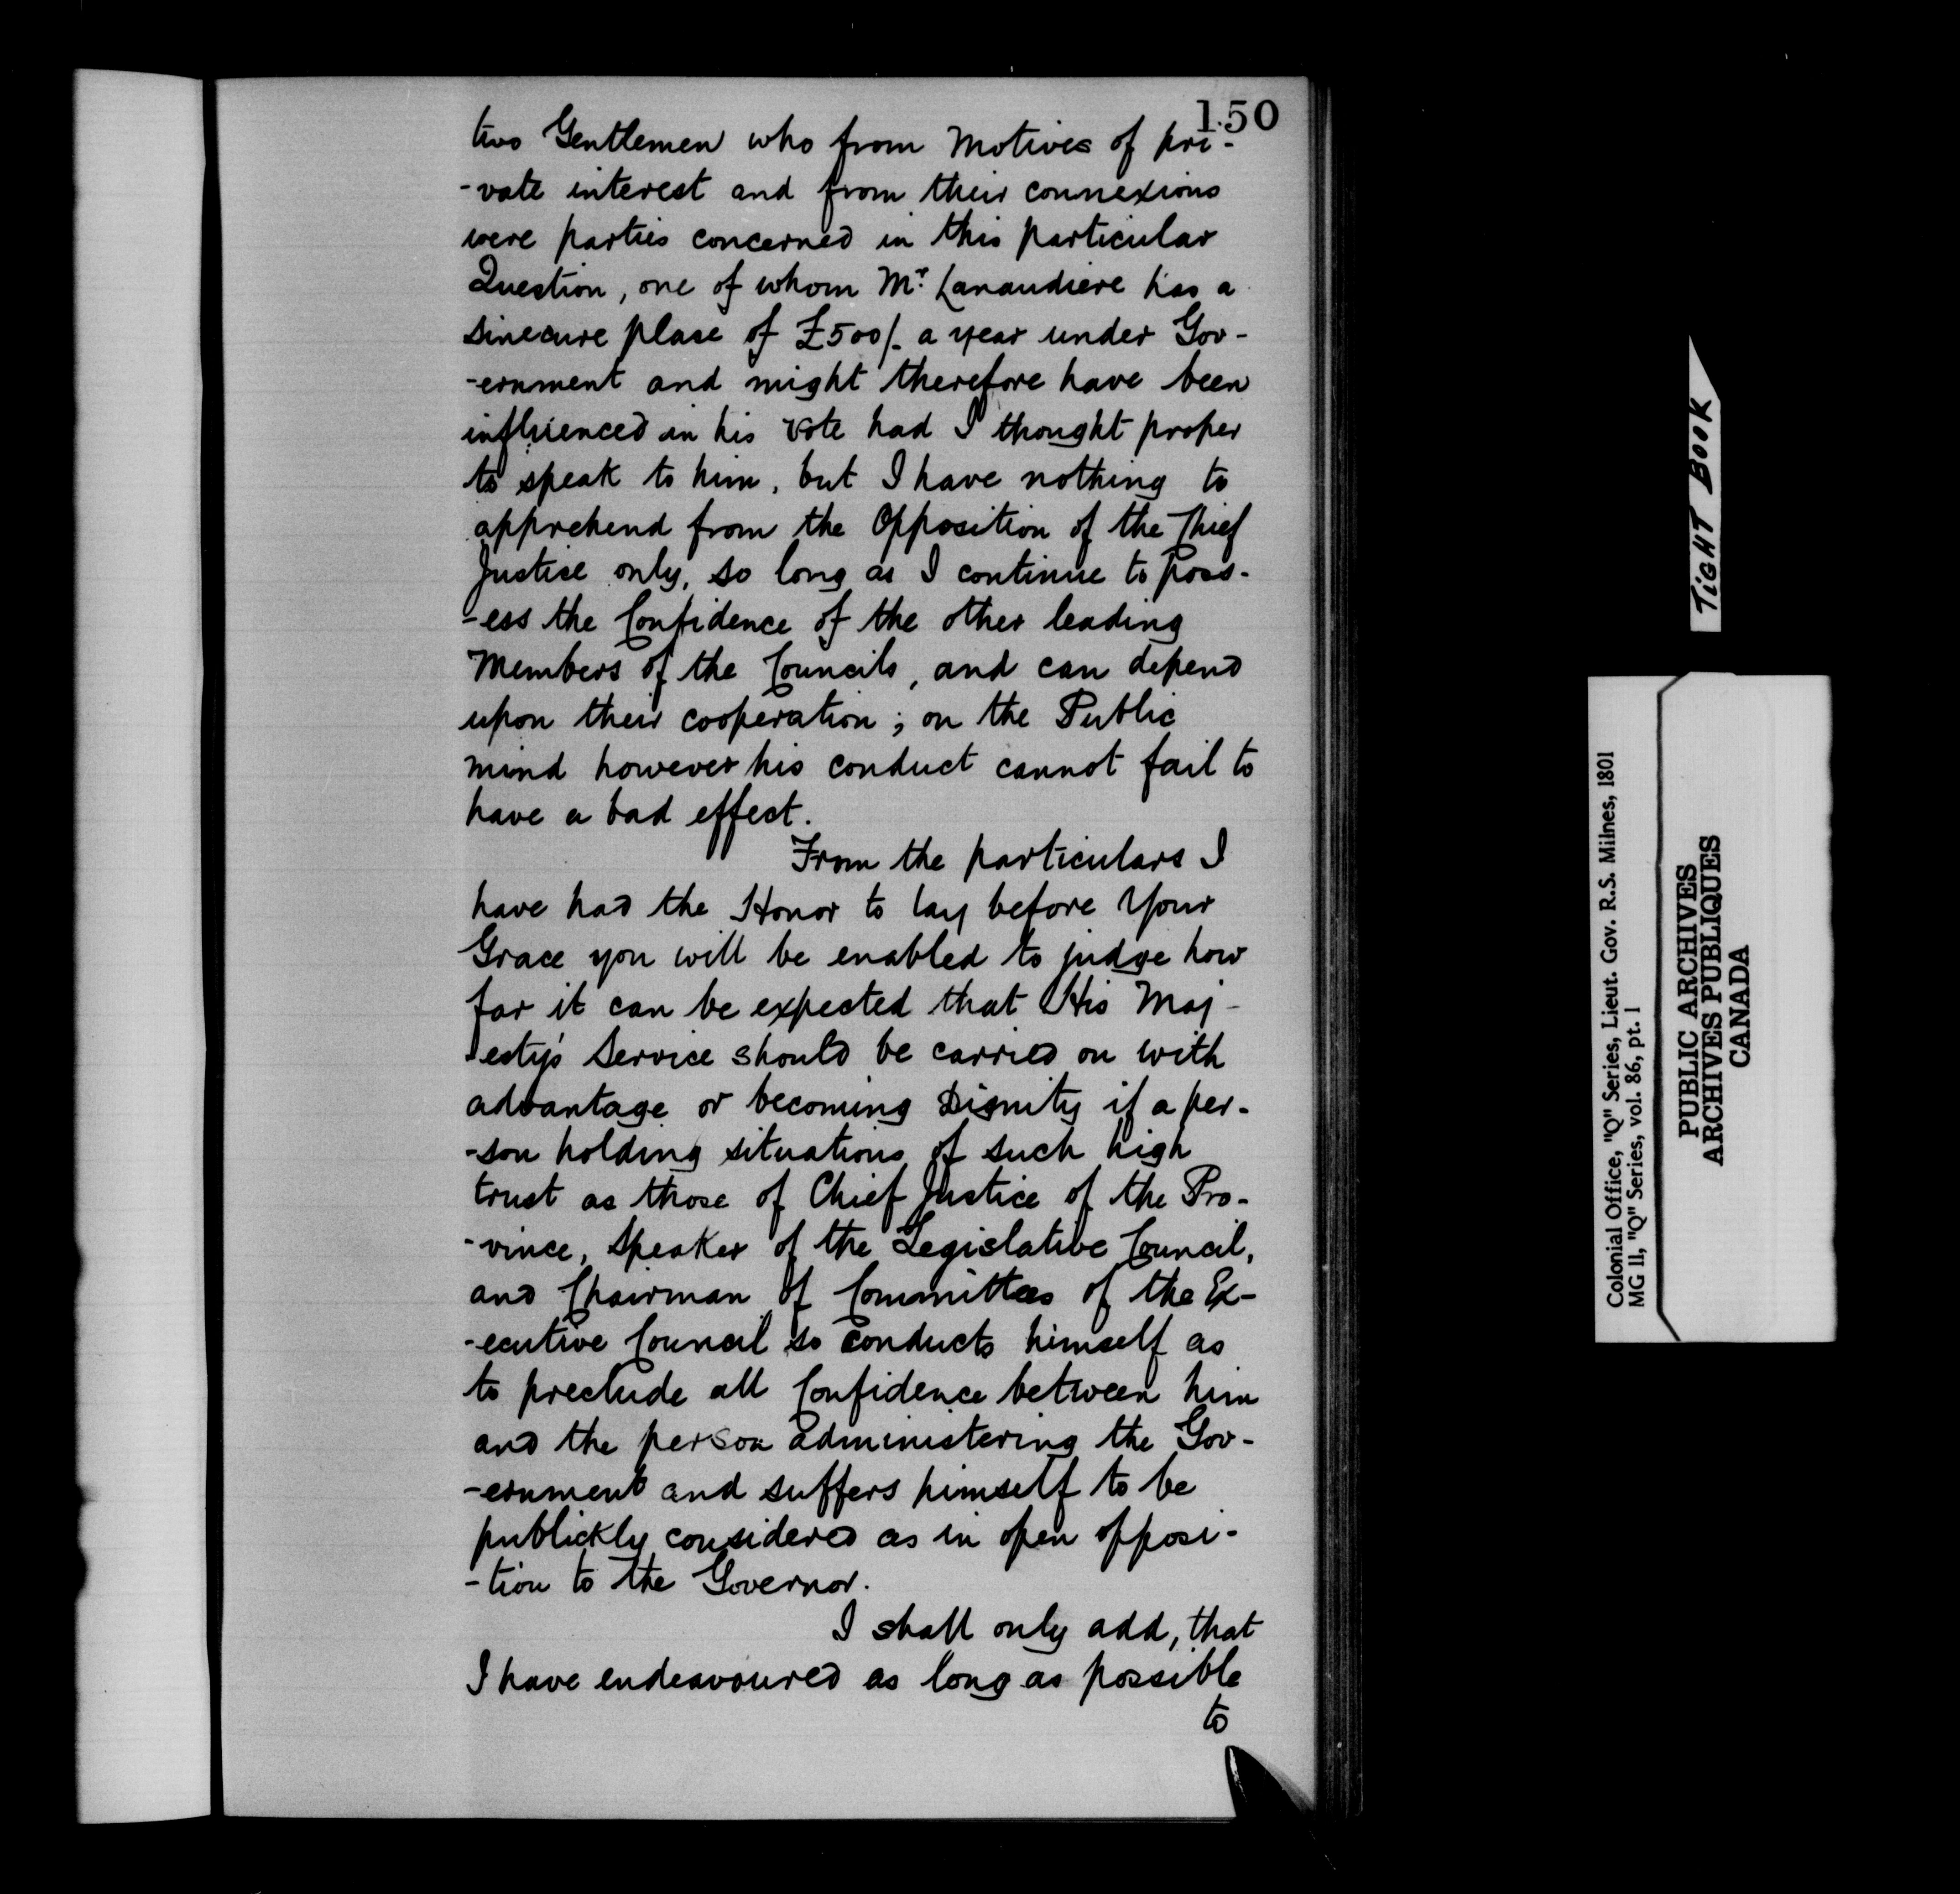 150
two Gentlemen who from Motives of pri-
-vate interest and from their connexions
were parties concerned in this particular
Question, one of whom Mr. Lanaudiere has a
Sinecure place of £500/- a year under Gov-
-ernment and might therefore have been
influenced in his vote had I thought proper
to speak to him, but I have nothing to
apprehend from the Opposition of the Chief
Justice only, so long as I continue to poss-
-ess the Confidence of the other leading
Members of the Councils, and can depend
upon their cooperation; on the Public
mind however his conduct cannot fail to
have a bad effect.
From the particulars I
have had the Honor to lay before Your
Grace you will be enabled to judge how
far it can be expected that His Maj-
-esty's Service should be carried on with
advantage or becoming Dignity if a per-
-son holding situations of such high
trust as those of Chief Justice of the Pro-
-vince, Speaker of the Legislative Council,
and Chairman of Committees of the Ex-
-ecutive Council so conducts himself as
to preclude all Confidence between him
and the person administering the Gov-
-ernment and suffers himself to be
publickly considered as in open opposi-
-tion to the Governor.
I shall only add, that
I have endeavoured as long as possible
to
TIGHT BOOK
Colonial Office, "Q" Series, Lieut. Gov. R.S. Milnes, 1801
MG 11, "Q" Series, vol. 86, pt. 1
PUBLIC ARCHIVES
ARCHIVES PUBLIQUES
CANADA